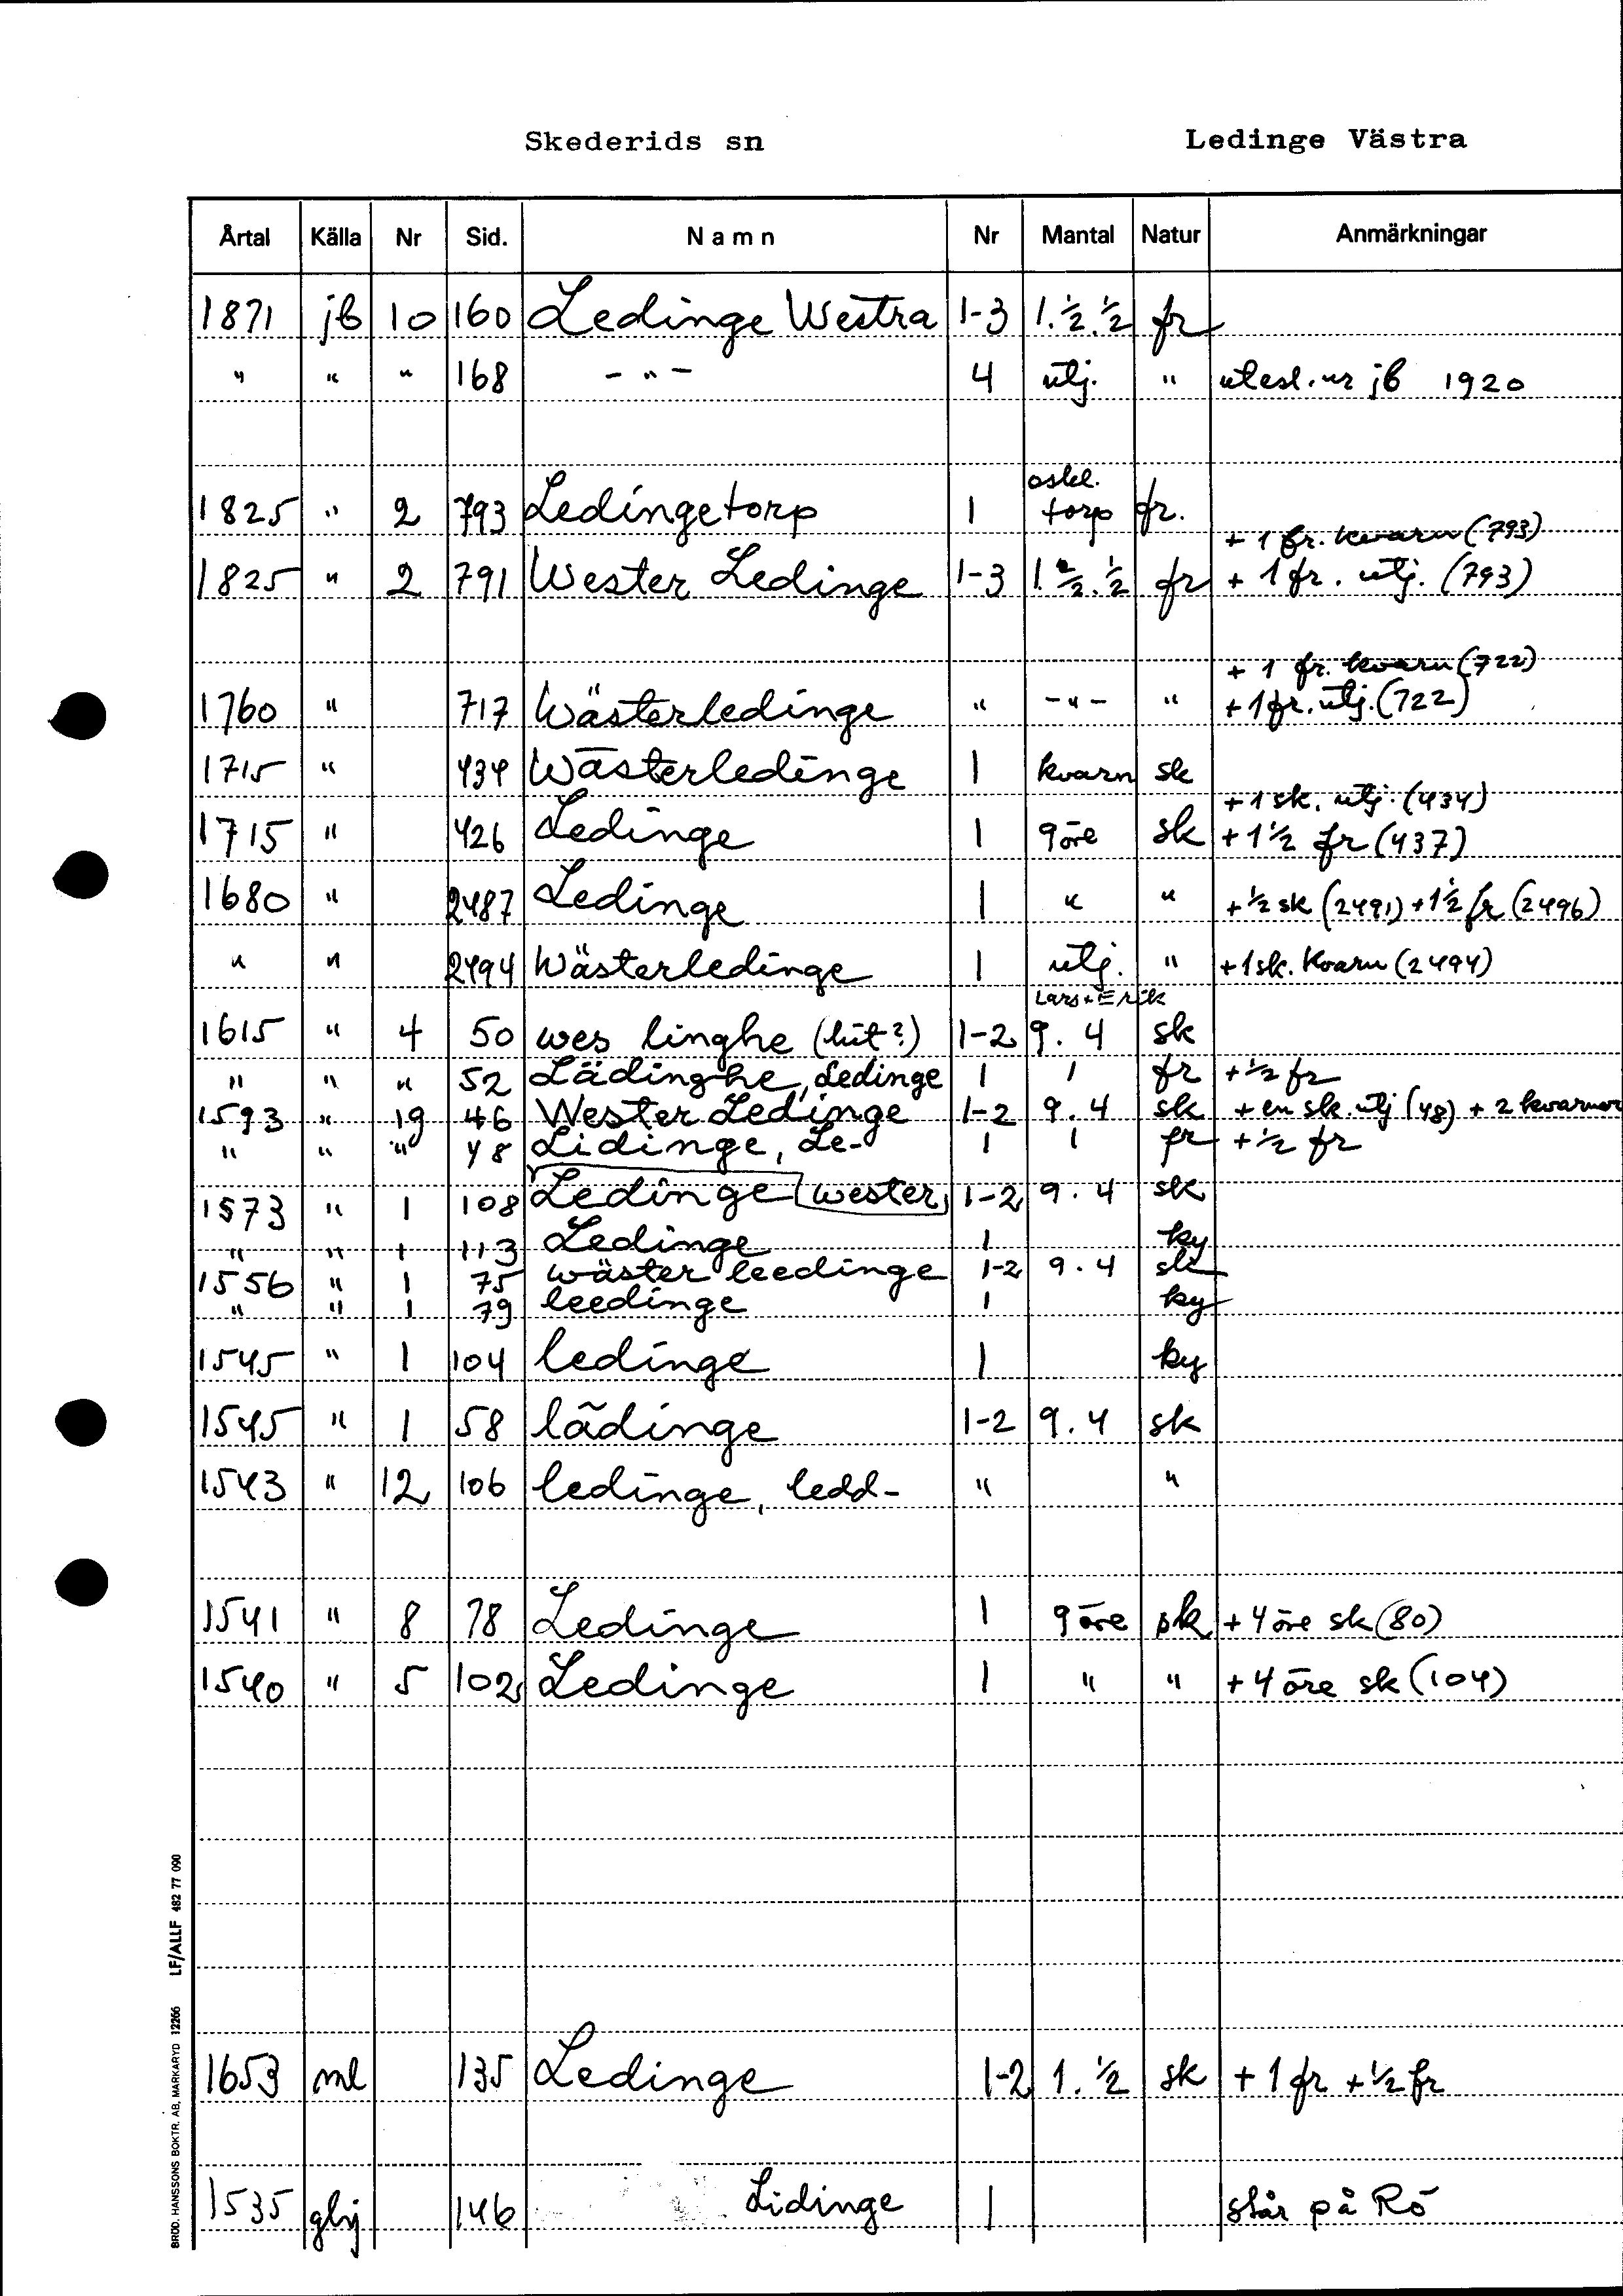 Skederids sn Ledinge Västra
Årtal Källa Nr Sid. Namn Nr Mantal Natur Anmärkningar
1871 jb 10 160 Ledinge Westra 1-3 1.½.½ fr
" " " 168 -"- 4 utj. " utesl. ur jb 1920
1825 " 2 793 Ledingetorp 1 oskl. torp fr.
+ 1 fr. kvarn (793)
1825 " 2 791 Wester Ledinge 1-3 1.½.½ fr + 1 fr. utj. (793)
+ 1 fr. kvarn (722)
1760 " 717 Wästerledinge " -"- " +1 fr. utj. (722)
1715 " 434 Wästerledinge 1 kvarn sk
+1 sk. utj. (434)
1715 " 426 Ledinge 1 9 öre sk +1½ fr (437)
1680 " 2487 Ledinge 1 " " +½ sk (2491) +1½ fr (2496)
" " 2494 Wästerledinge 1 utj. " +1 sk. Kvarn (2494)
Lars + Erik
1615 " 4 50 wes linghe (hit?) 1-2 9. 4 sk
" " " 52 Lädinghe, Ledinge 1 1 fr +½ fr
1593 " 19 46 Wester Ledinge 1-2 9.4 sk + en sk. utj (48) + 2 kvarnor
" " " 48 Lidinge, Le- 1 1 fr +½ fr
1573 " 1 108 Ledinge wester 1-2 9.4 sk
" " 1 113 Ledinge 1 ky
1556 " 1 75 wäster leedinge 1-2 9.4 sk
" " 1 79 leedinge 1 ky
1545 " 1 104 ledinge 1 ky
1545 " 1 58 lädinge 1-2 9.4 sk
1543 " 12 106 ledinge, ledd- " "
1541 " 8 78 Ledinge 1 9 öre sk +4 öre sk (80)
1540 " 5 102 Ledinge 1 " " +4 öre sk (104)
1653 ml 135 Ledinge 1-2 1.½ sk +1 fr +½ fr
1535 glij 146 Lidinge 1 står på Rö
BRÖD. HANSSONS BOKTR. AB, MARKARYD 12266 LF/ALLF 482 77 090